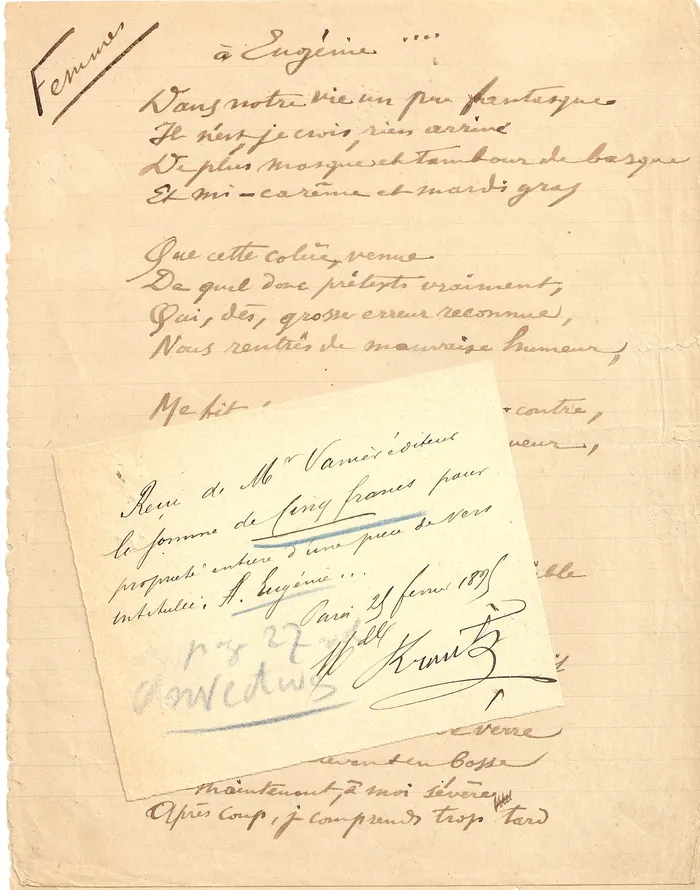 Femmes
à Eugénie ....
Dans notre vie un peu fantasque
Il n'est, je crois, rien arrivé
De plus masque et tambour de basque
Et mi-carême et mardi gras
Que cette cohüe, venue
De quel donc prétexte vraiment,
Qui, dès, grosse erreur reconnue,
Nous rentrés de mauvaise humeur,
Me fit
contre,
ueur,
Reçu de Mr Vanier éditeur
la somme de Cinq francs pour
propriété entière d'une pièce de vers
intitulée: A. Eugénie...
Paris 25 février 1895
Mlle Krantz
pag 27
Invectives
ible
it
de verre
en bosse
maintenant, à moi sévère
Après coup, je comprends trop tard